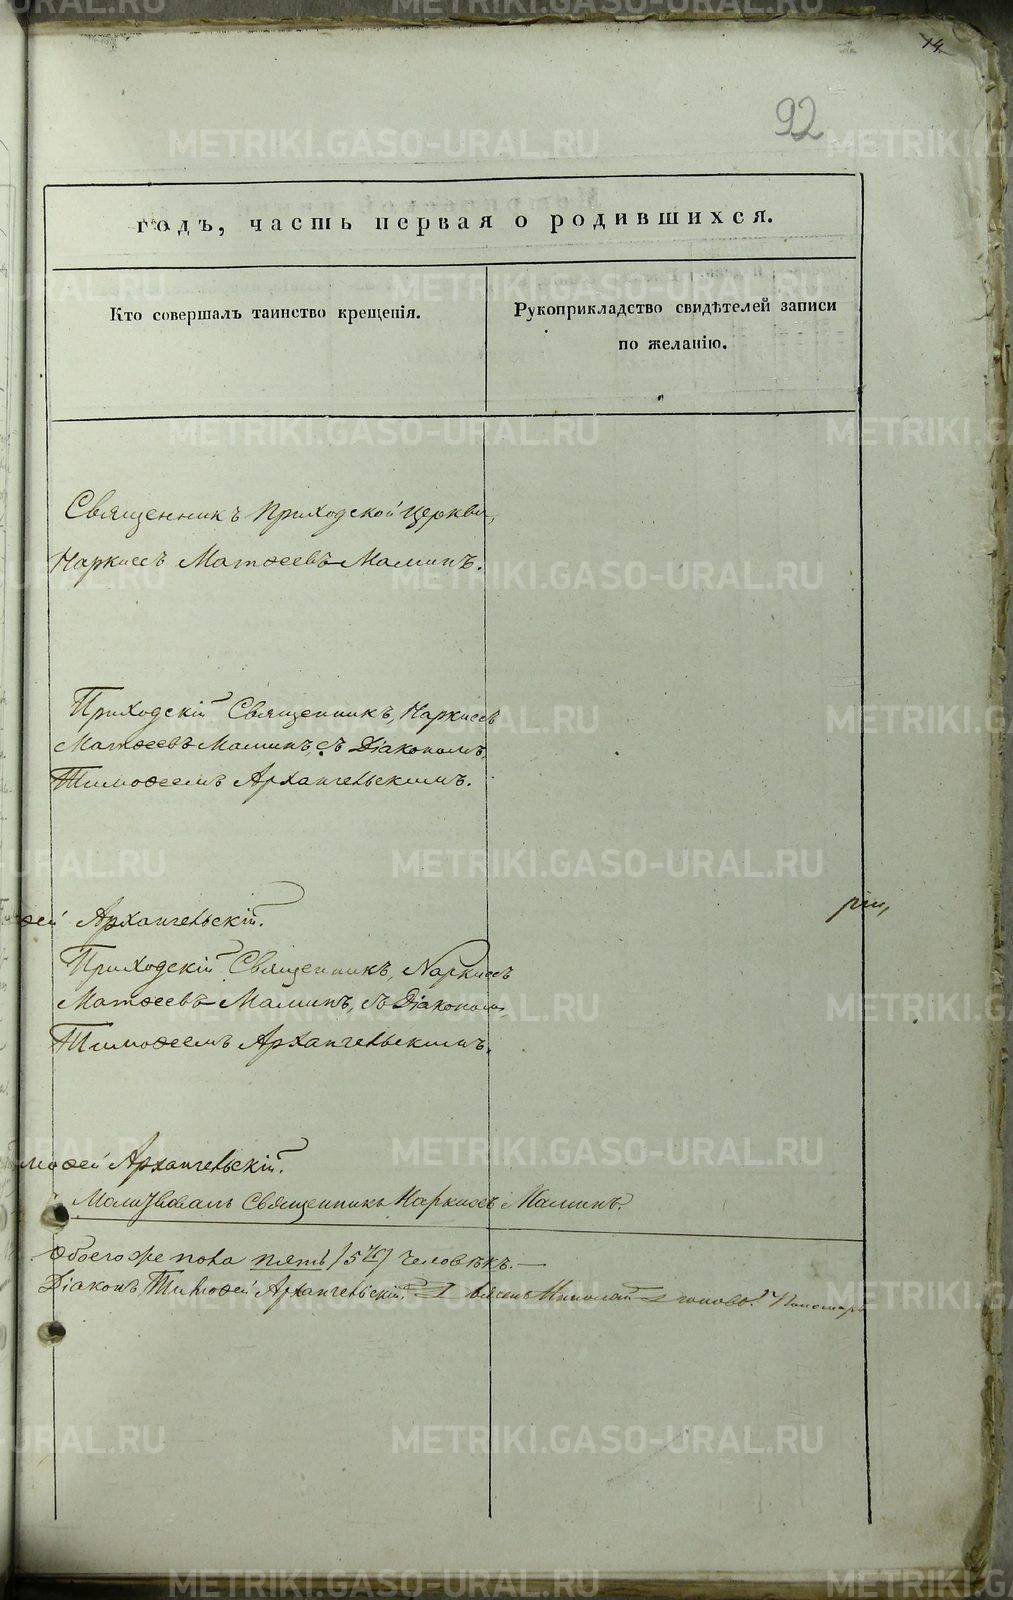 14.
92
годъ, часть первая о родившихся.
Кто совершалъ таинство крещенія.
Рукоприкладство свидѣтелей записи
по желанію.
Священникъ Приходской церкви,
Наркиссъ Матѳеевъ Маминъ.
Приходскій Священникъ, Наркиссъ
Матѳеевъ Маминъ, съ Діакономъ,
Тимоѳеемъ Архангельскимъ.
ѳей Архангельскій.
Приходскій Священникъ, Наркиссъ
Матѳеевъ Маминъ, съ Діакономъ
Тимоѳеемъ Архангельскимъ.
моѳей Архангельскій.
Священникъ Наркиссъ Маминъ.
Обоего же пола пять /5/ человѣкъ.
Діаконъ Тимоѳей Архангельскій. Николай Пономарь
METRIKI.GASO-URAL.RU